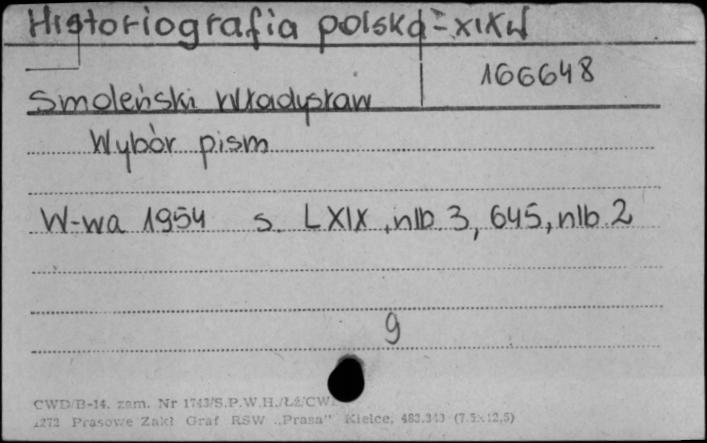 Historiografia polska - XIX w
166648
Smoleński Władysław
Wybór pism
W-wa 1954 s. LXIX, nlb. 3, 645, nlb. 2
9
CWD/B-14. zam. Nr 1743/S.P.W.H./ŁŹ/CW
1272 Prasowe Zakł Graf RSW „Prasa" Kielce, 483.343 (7.5×12,5)